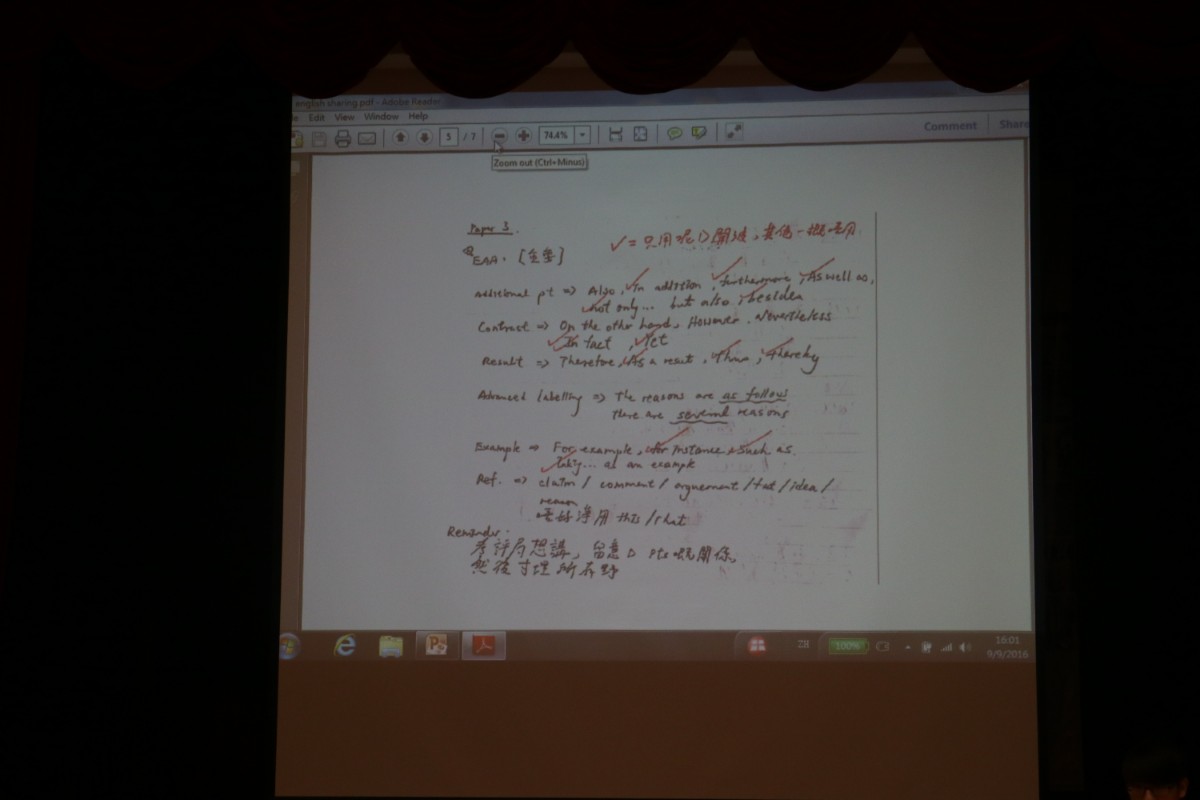 english sharing.pdf - Adobe Reader
Edit View Window Help
5 / 7 74.4% Comment Share
Zoom out (Ctrl+Minus)
Paper 3.
✓ = 只用呢D開波, 其他一概唔用
EAA.
Additional pt => Also, In addition, furthermore, As well as,
not only... but also, besides
Contrast => On the other hand, However, Nevertheless
In fact, Yet
Result => Therefore, As a result, Thus, Thereby
Advanced labelling => The reasons are as follow
There are several reasons
Example => For example, for instance, such as.
Taking... as an example
Ref. => claim / comment / arguement / fact / idea /
reason
唔好淨用 this / that
Reminder:
考評局想講, 留意D pts嘅關係,
然後寸埋所有野
ZH 100% 16:01
9/9/2016